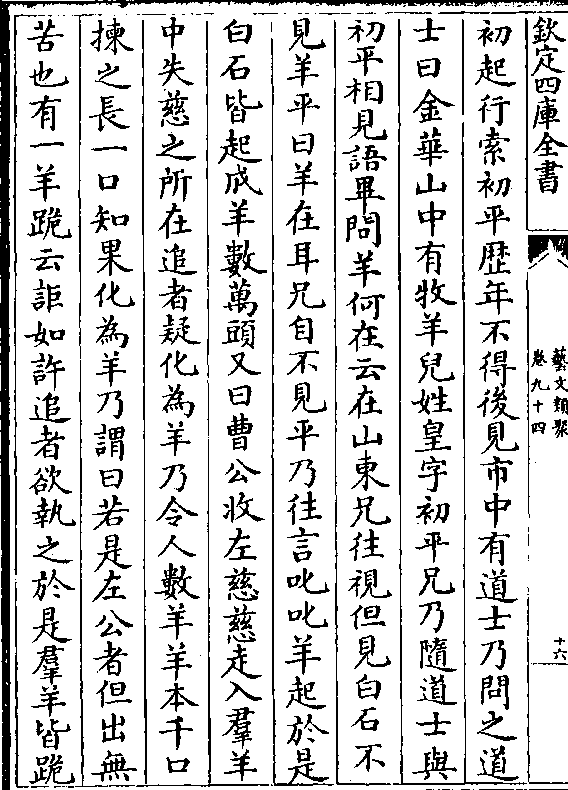 欽定四庫全書
藝文類聚
卷九十四
十六
初起行索初平歴年不得後見市中有道士乃問之道
士曰金華山中有牧羊兒姓皇字初平兄乃隨道士與
初平相見語畢問羊何在云在山東兄往視但見白石不
見羊平曰羊在耳兄自不見平乃往言叱叱羊起於是
白石皆起成羊數萬頭又曰曹公收左慈慈走入羣羊
中失慈之所在追者疑化為羊乃令人數羊羊本千口
揀之長一口知果化為羊乃謂曰若是左公者但出無
苦也有一羊跪云詎如許追者欲執之於是羣羊皆跪